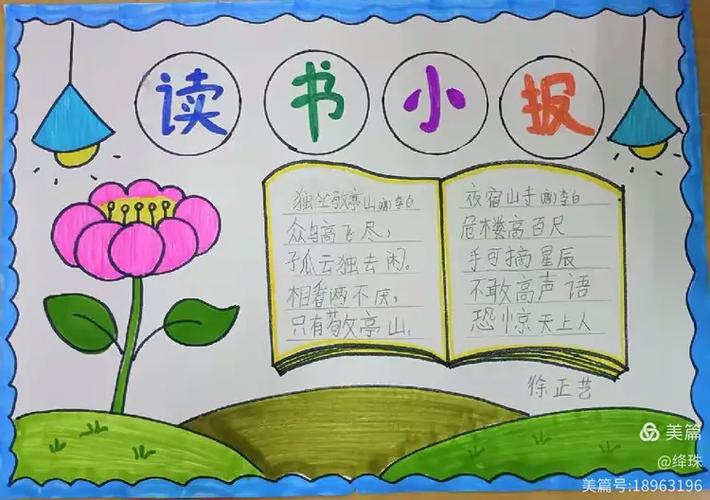 读书小报
独坐敬亭山(唐)李白
众鸟高飞尽，
孑瓜云独去闲。
相看两不厌，
只有敬亭山。
夜宿山寺(唐)李白
危楼高百尺
手可摘星辰
不敢高声语
恐惊天上人
徐正艺
美篇
@绛珠
美篇号:18963196